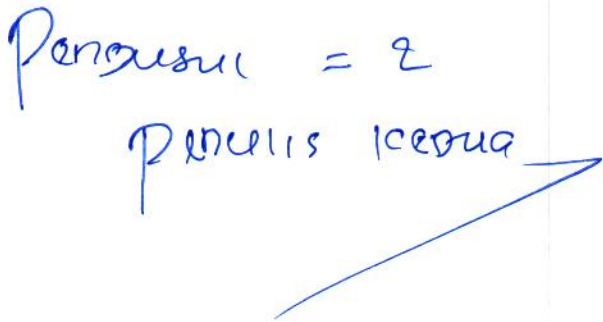 Pengusul = 2
penulis kedua